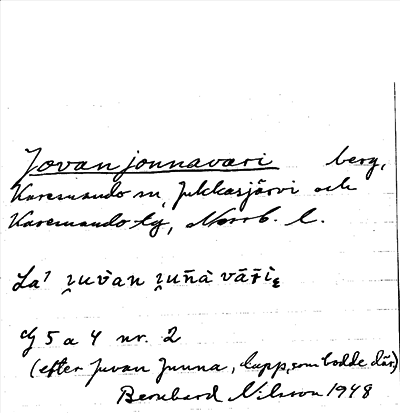 Jovanjounavaari berg,
Karesuando sn, Jukkasjärvi och
Karesuando tg, Norrb. l.
La
5 a 4 nr. 2
(efter Juvan Juuna, lapp, som bodde där)
Bernhard Nilsson 1948